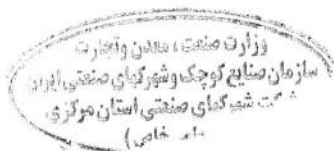 وزارت صنعت ، معدن وتجارت
سازمان صنایع کوچک وشهرکهای صنعتی ایران
شرکت شهرکهای صنعتی استان مرکزی
خاص )